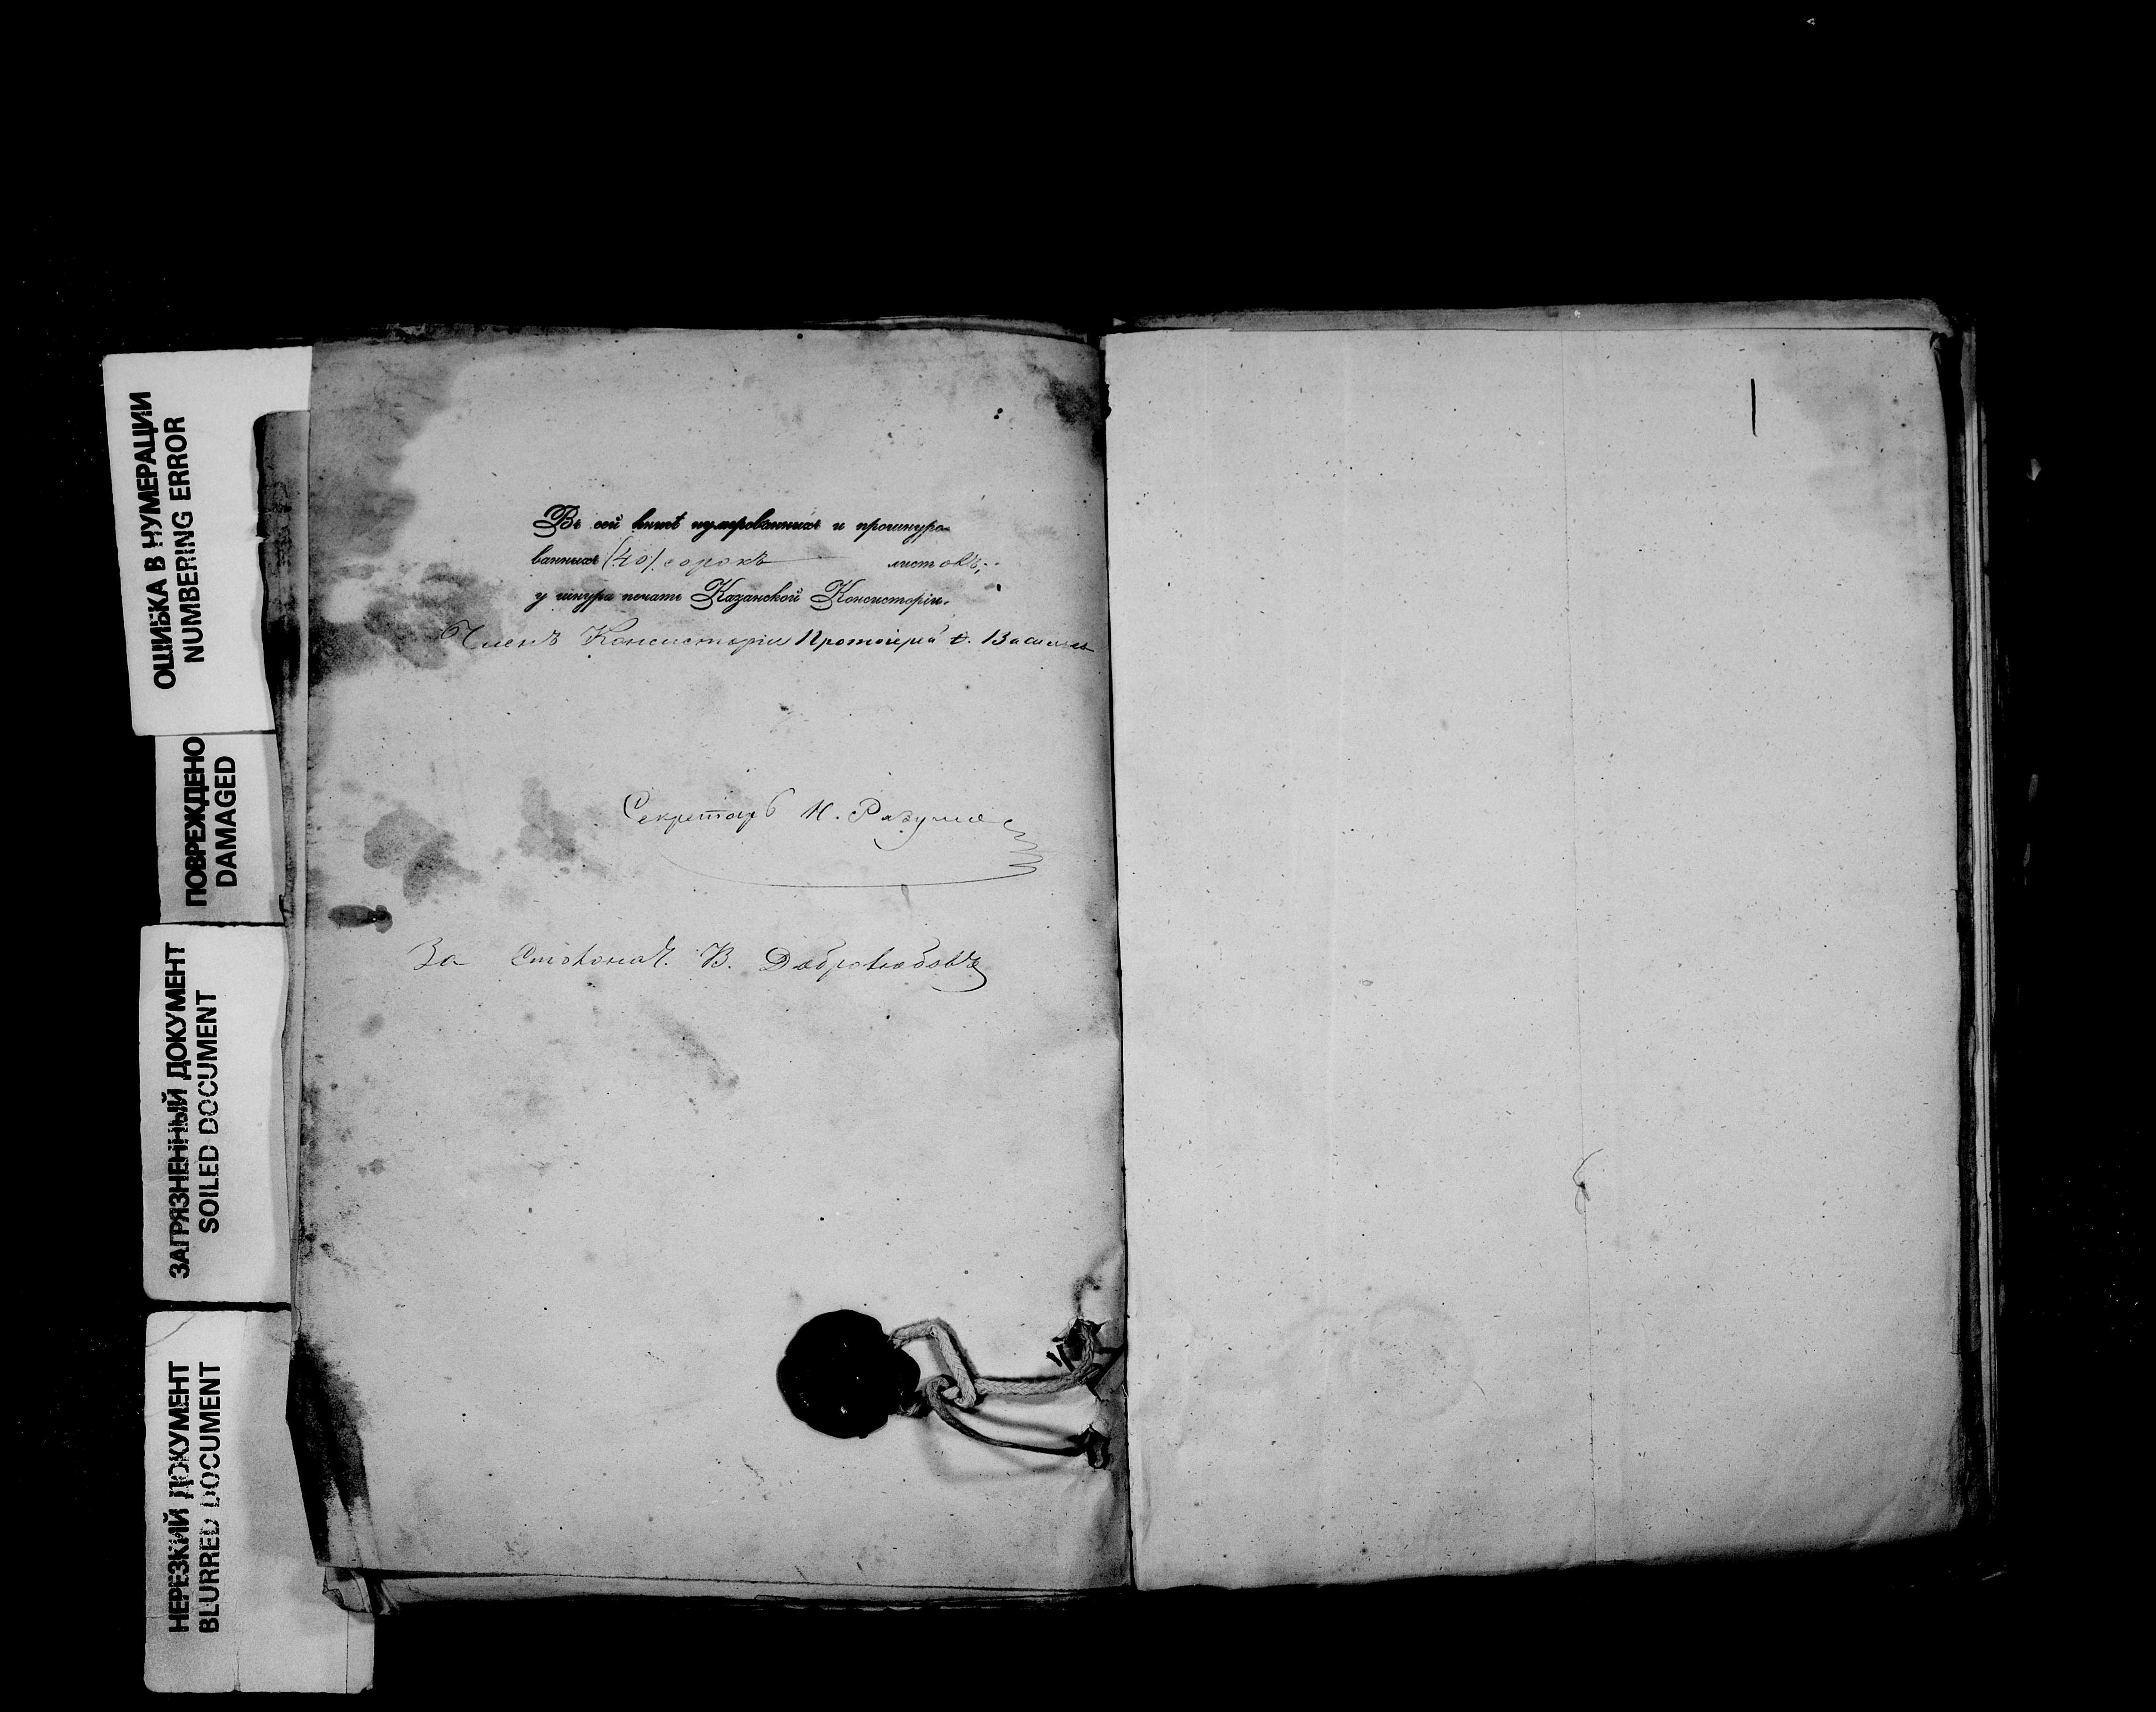 ОШИБКА В НУМЕРАЦИИ
NUMBERING ERROR
ПОВРЕЖДЕНО
DAMAGED
ЗАГРЯЗНЕННЫЙ ДОКУМЕНТ
SOILED DOCUMENT
НЕРЕЗКИЙ ДОКУМЕНТ
BLURRED DOCUMENT
Въ сей книгѣ нумерованныхъ и прошнуро-
ванныхъ (40) сорокъ листовъ;
у шнура печать Казанской Консисторіи.
Членъ Консисторіи Протоіерей
Секретарь Н. Разумов
За Столонач. В. Добролюбовъ
1